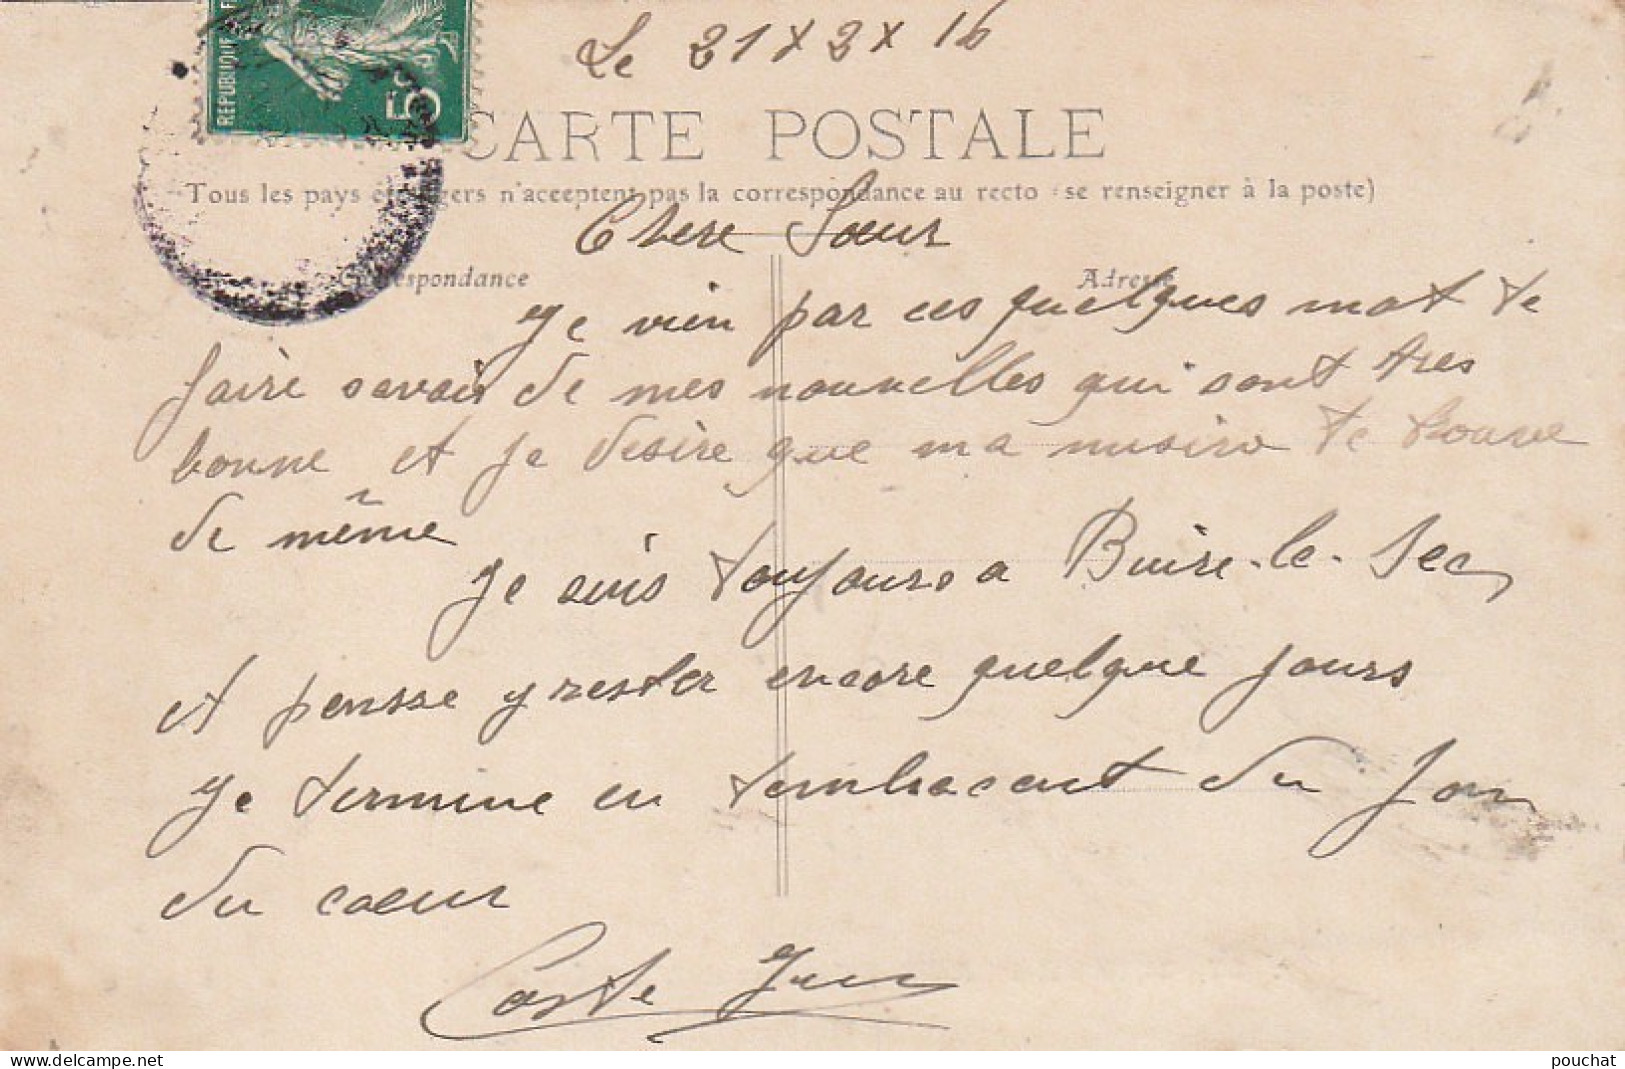 Le 21 x 2 x 16
REPUBLIQUE F
5c
CARTE POSTALE
Tous les pays étrangers n'acceptent pas la correspondance au recto (se renseigner à la poste)
Chere Sœur
Correspondance
Adresse
Je vien par ces quelques mot te
faire savoir de mes nouvelles qui sont tres
bonne et je desire que ma musiro te trouve
de même
Je suis toujours a Buire-le-Sec,
et pensse y rester encore quelque jours
Je termine en tembracent du fon
du cœur
Coste
pouchat